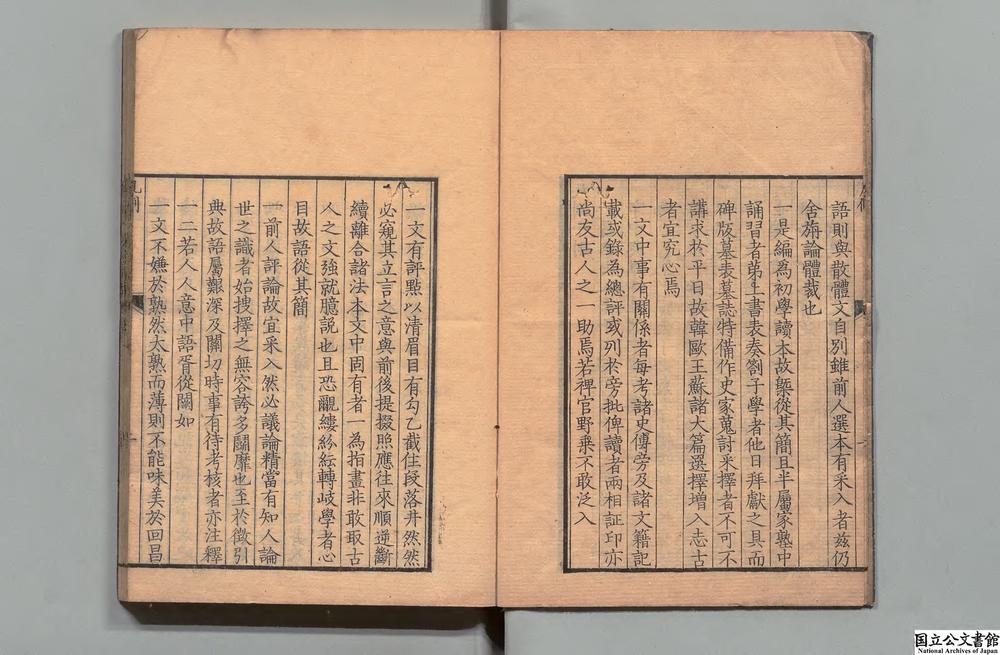 語則與散體文自別雖前人選本有采入者茲仍
舍旃論體裁也
一是編為初學讀本故槩從其簡且半屬家塾中
誦習者第上書表奏劄子學者他日拜獻之具而
碑版墓表墓誌特備作史家蒐討釆擇者不可不
講求於平日故韓歐王蘇諸大篇選擇增入志古
者宜究心焉
一文中事有關係者每考諸史傳旁及諸文籍記
載或錄為總評或列於旁批俾讀者兩相証印亦
尚友古人之一助焉若稗官野乗不敢泛入
一文有評點以清眉目有勾乙截住段落井然然
必窺其立言之意與前後提掇照應往來順逆斷
續離合諸法本文中固有者一為指畫非敢取古
人之文強就臆說也且恐覼縷紛紜轉岐學者心
目故語從其簡
一前人評論故宜采入然必議論精當有知人論
世之識者始搜擇之無容誇多鬭靡也至於徵引
典故語屬艱深及關切時事有待考核者亦注釋
一二若人人意中語胥從闕如
一文不嫌於熟然太熟而薄則不能味美於回昌
国立公文書館
National Archives of Japan